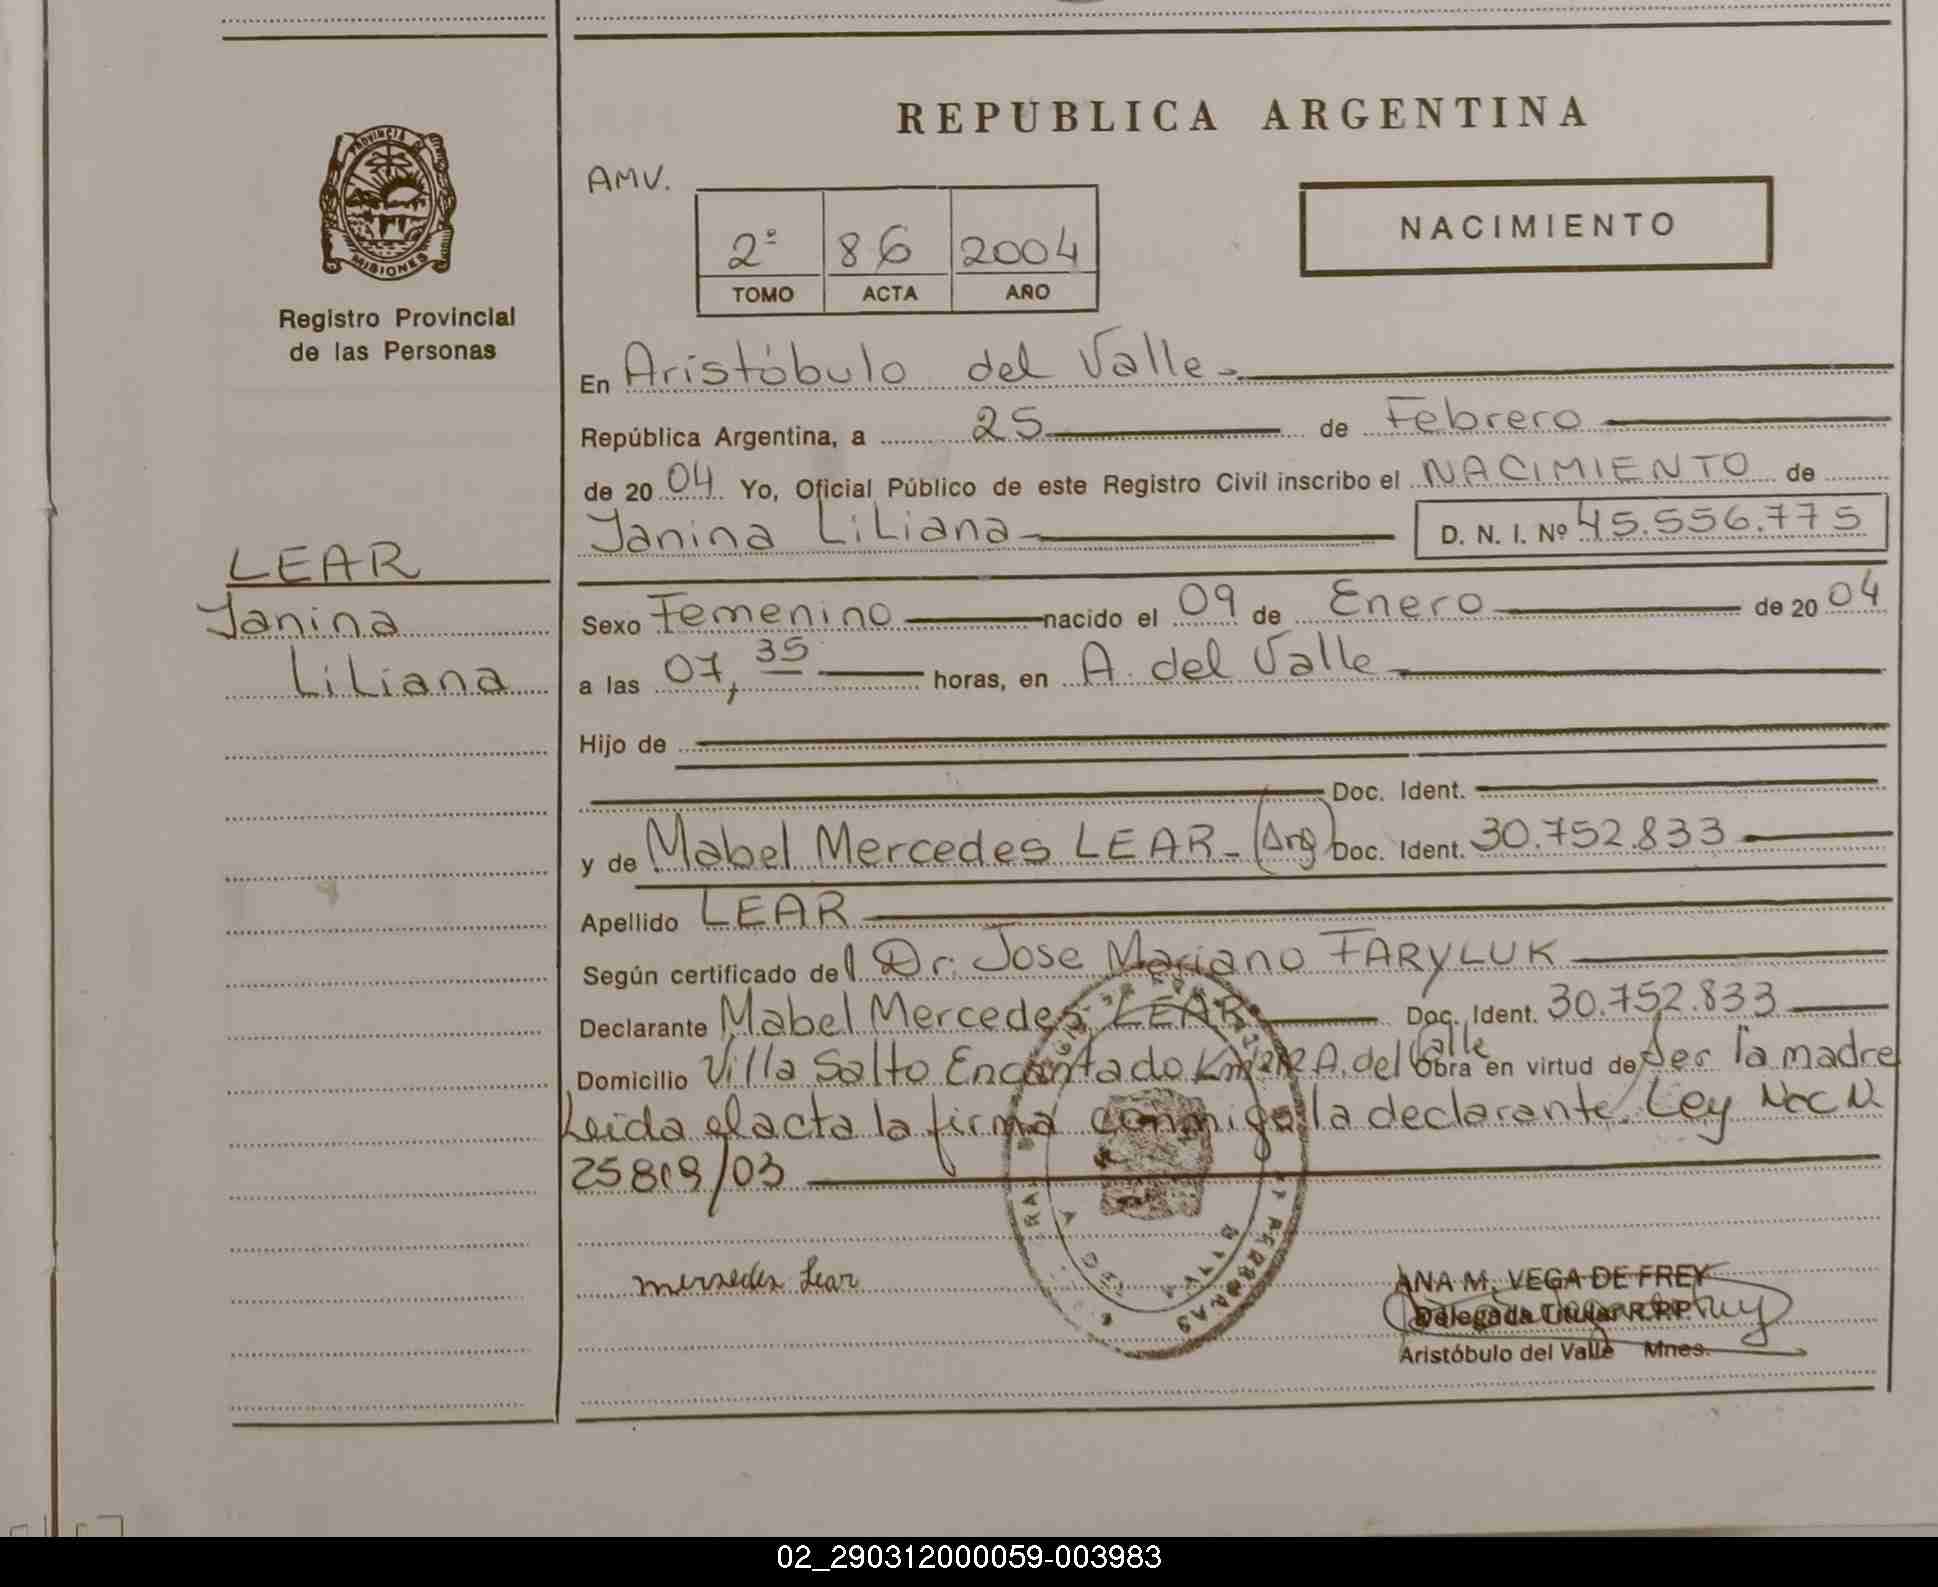 REPUBLICA ARGENTINA
PROVINCIA DE
MISIONES
Registro Provincial
de las Personas
AMV.
2º 86 2004
TOMO ACTA AÑO
NACIMIENTO
En Aristóbulo del Valle.
República Argentina, a 25 de Febrero
de 2004 Yo, Oficial Público de este Registro Civil inscribo el NACIMIENTO de
Janina Liliana D. N. I. Nº 45.556.775
LEAR
Janina
Liliana
Sexo Femenino nacido el 09 de Enero de 2004
a las 07,35 horas, en A. del Valle
Hijo de
Doc. Ident.
y de Mabel Mercedes LEAR - (Arg) Doc. Ident. 30.752.833
Apellido LEAR
Según certificado del Dr. Jose Mariano FARYLUK
Declarante Mabel Mercedes LEAR Doc. Ident. 30.752.833
Domicilio Villa Salto Encantado A. del Valle Obra en virtud de Ser la madre
Leida el acta la firma conmigo la declarante. Ley Nac N
25819/03
mersedes Lear
ANA M. VEGA DE FREY
Delegada Titular R.P.P.
Aristóbulo del Valle Mnes.
02_290312000059-003983